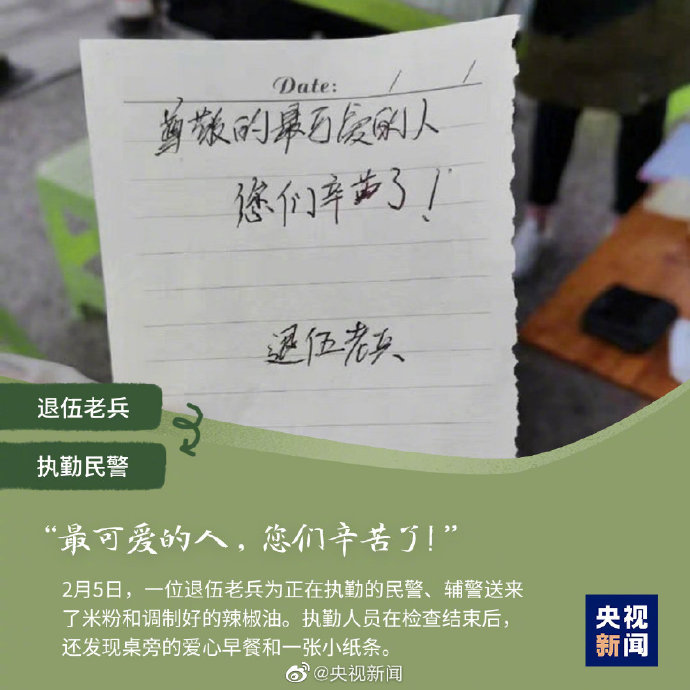 Date: / /
尊敬的最可爱的人
您们辛苦了!
退伍老兵
退伍老兵
执勤民警
“最可爱的人，您们辛苦了!”
2月5日，一位退伍老兵为正在执勤的民警、辅警送来
了米粉和调制好的辣椒油。执勤人员在检查结束后，
还发现桌旁的爱心早餐和一张小纸条。
央视
新闻
@央视新闻